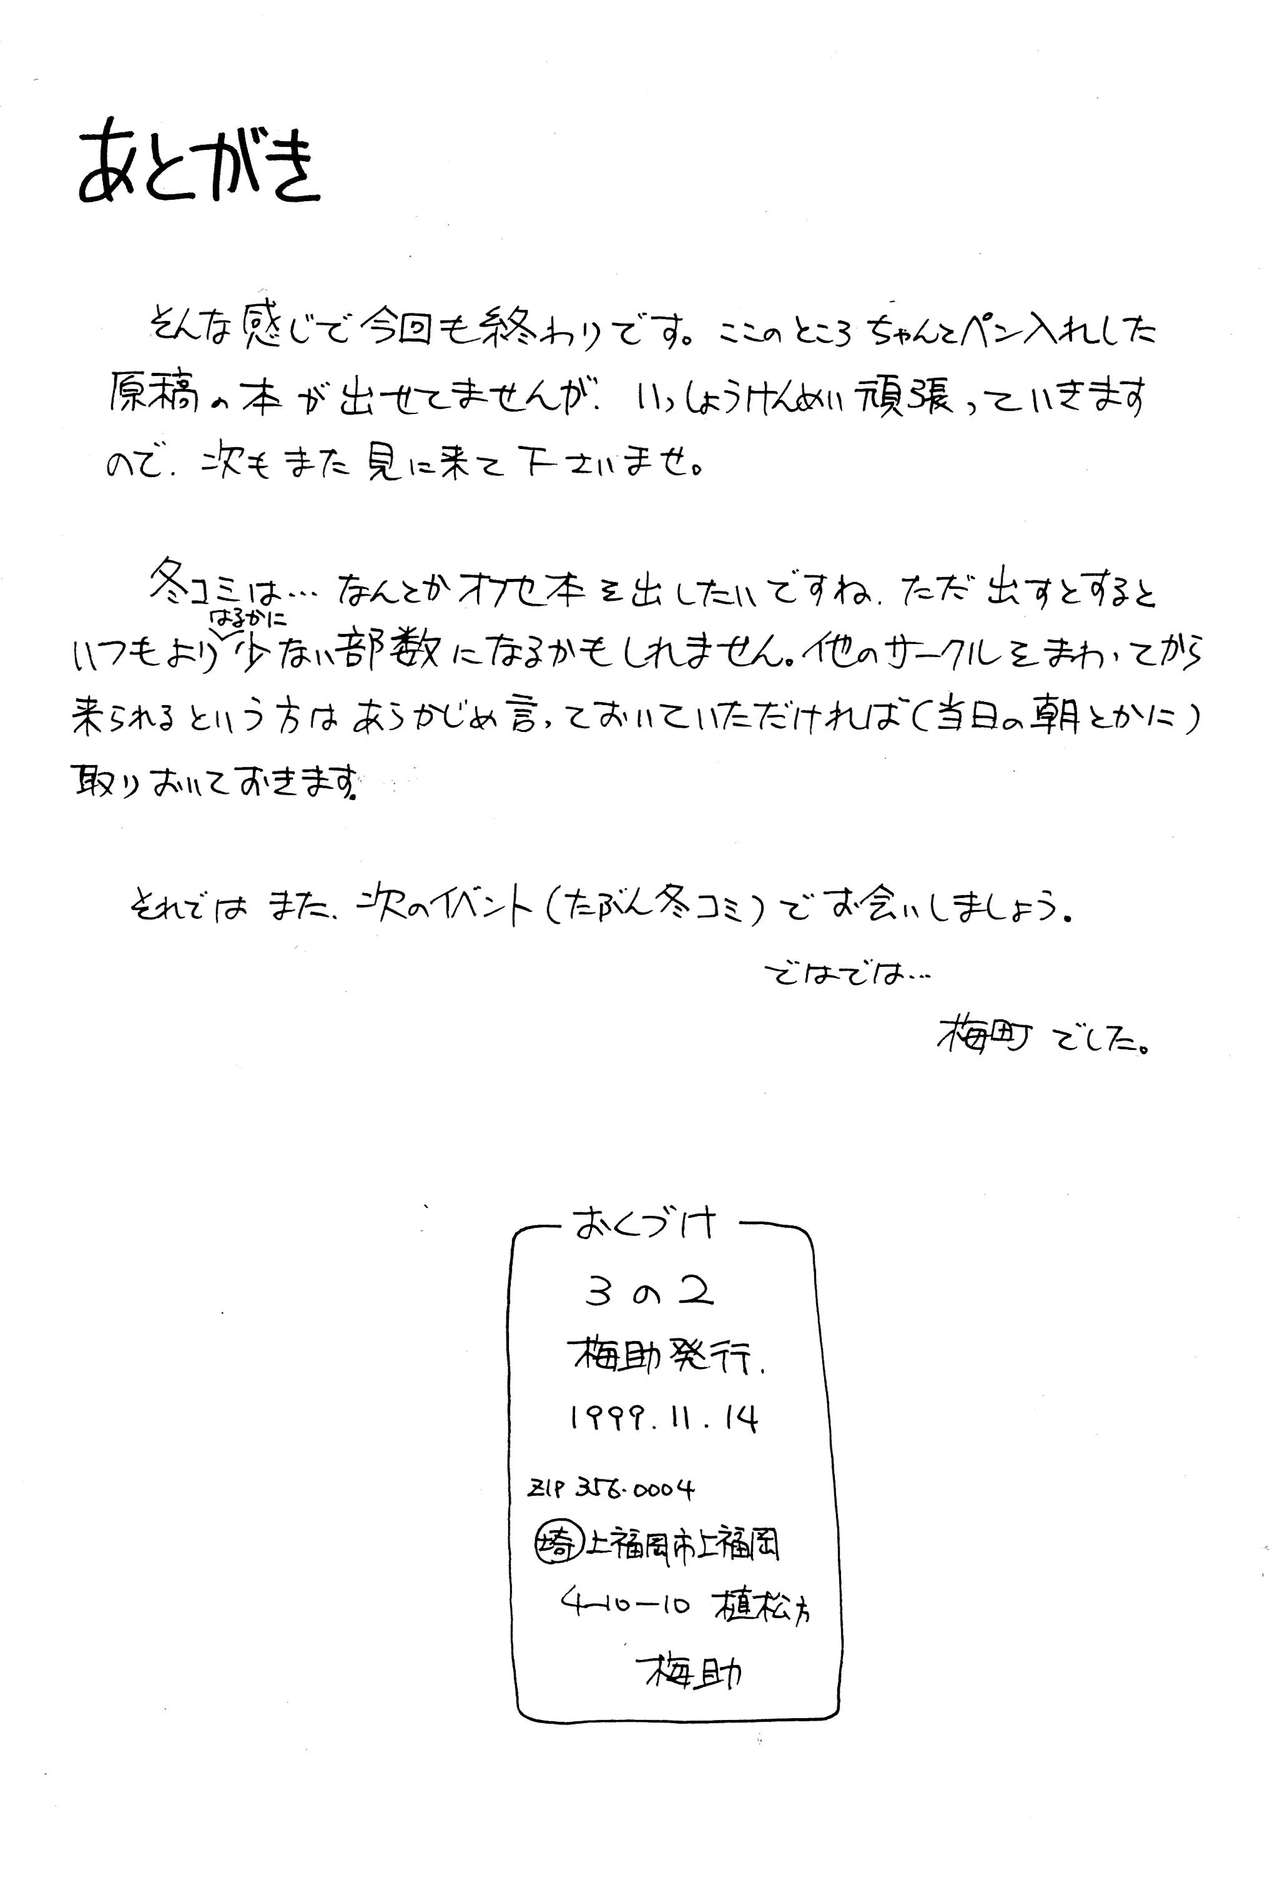 あとがき
そんな感じで今回も終わりです。ここのところちゃんとペン入れした
原稿の本が出せてませんが、いっしょうけんめい頑張っていきます
ので、次もまた見に来て下さいませ。
冬コミは…なんとかオフセ本を出したいですね、ただ出すとすると
いつもよりはるかに少ない部数になるかもしれません。他のサークルをまわってから
来られるという方はあらかじめ言っておいていただければ（当日の朝とかに）
取りおいておきます。
それではまた、次のイベント（たぶん冬コミ）でお会いしましょう。
ではでは…
梅町でした。
おくづけ
3の2
梅助発行.
1999.11.14
ZIP 356-0004
埼上福岡市上福岡
4-10-10 植松方
梅助